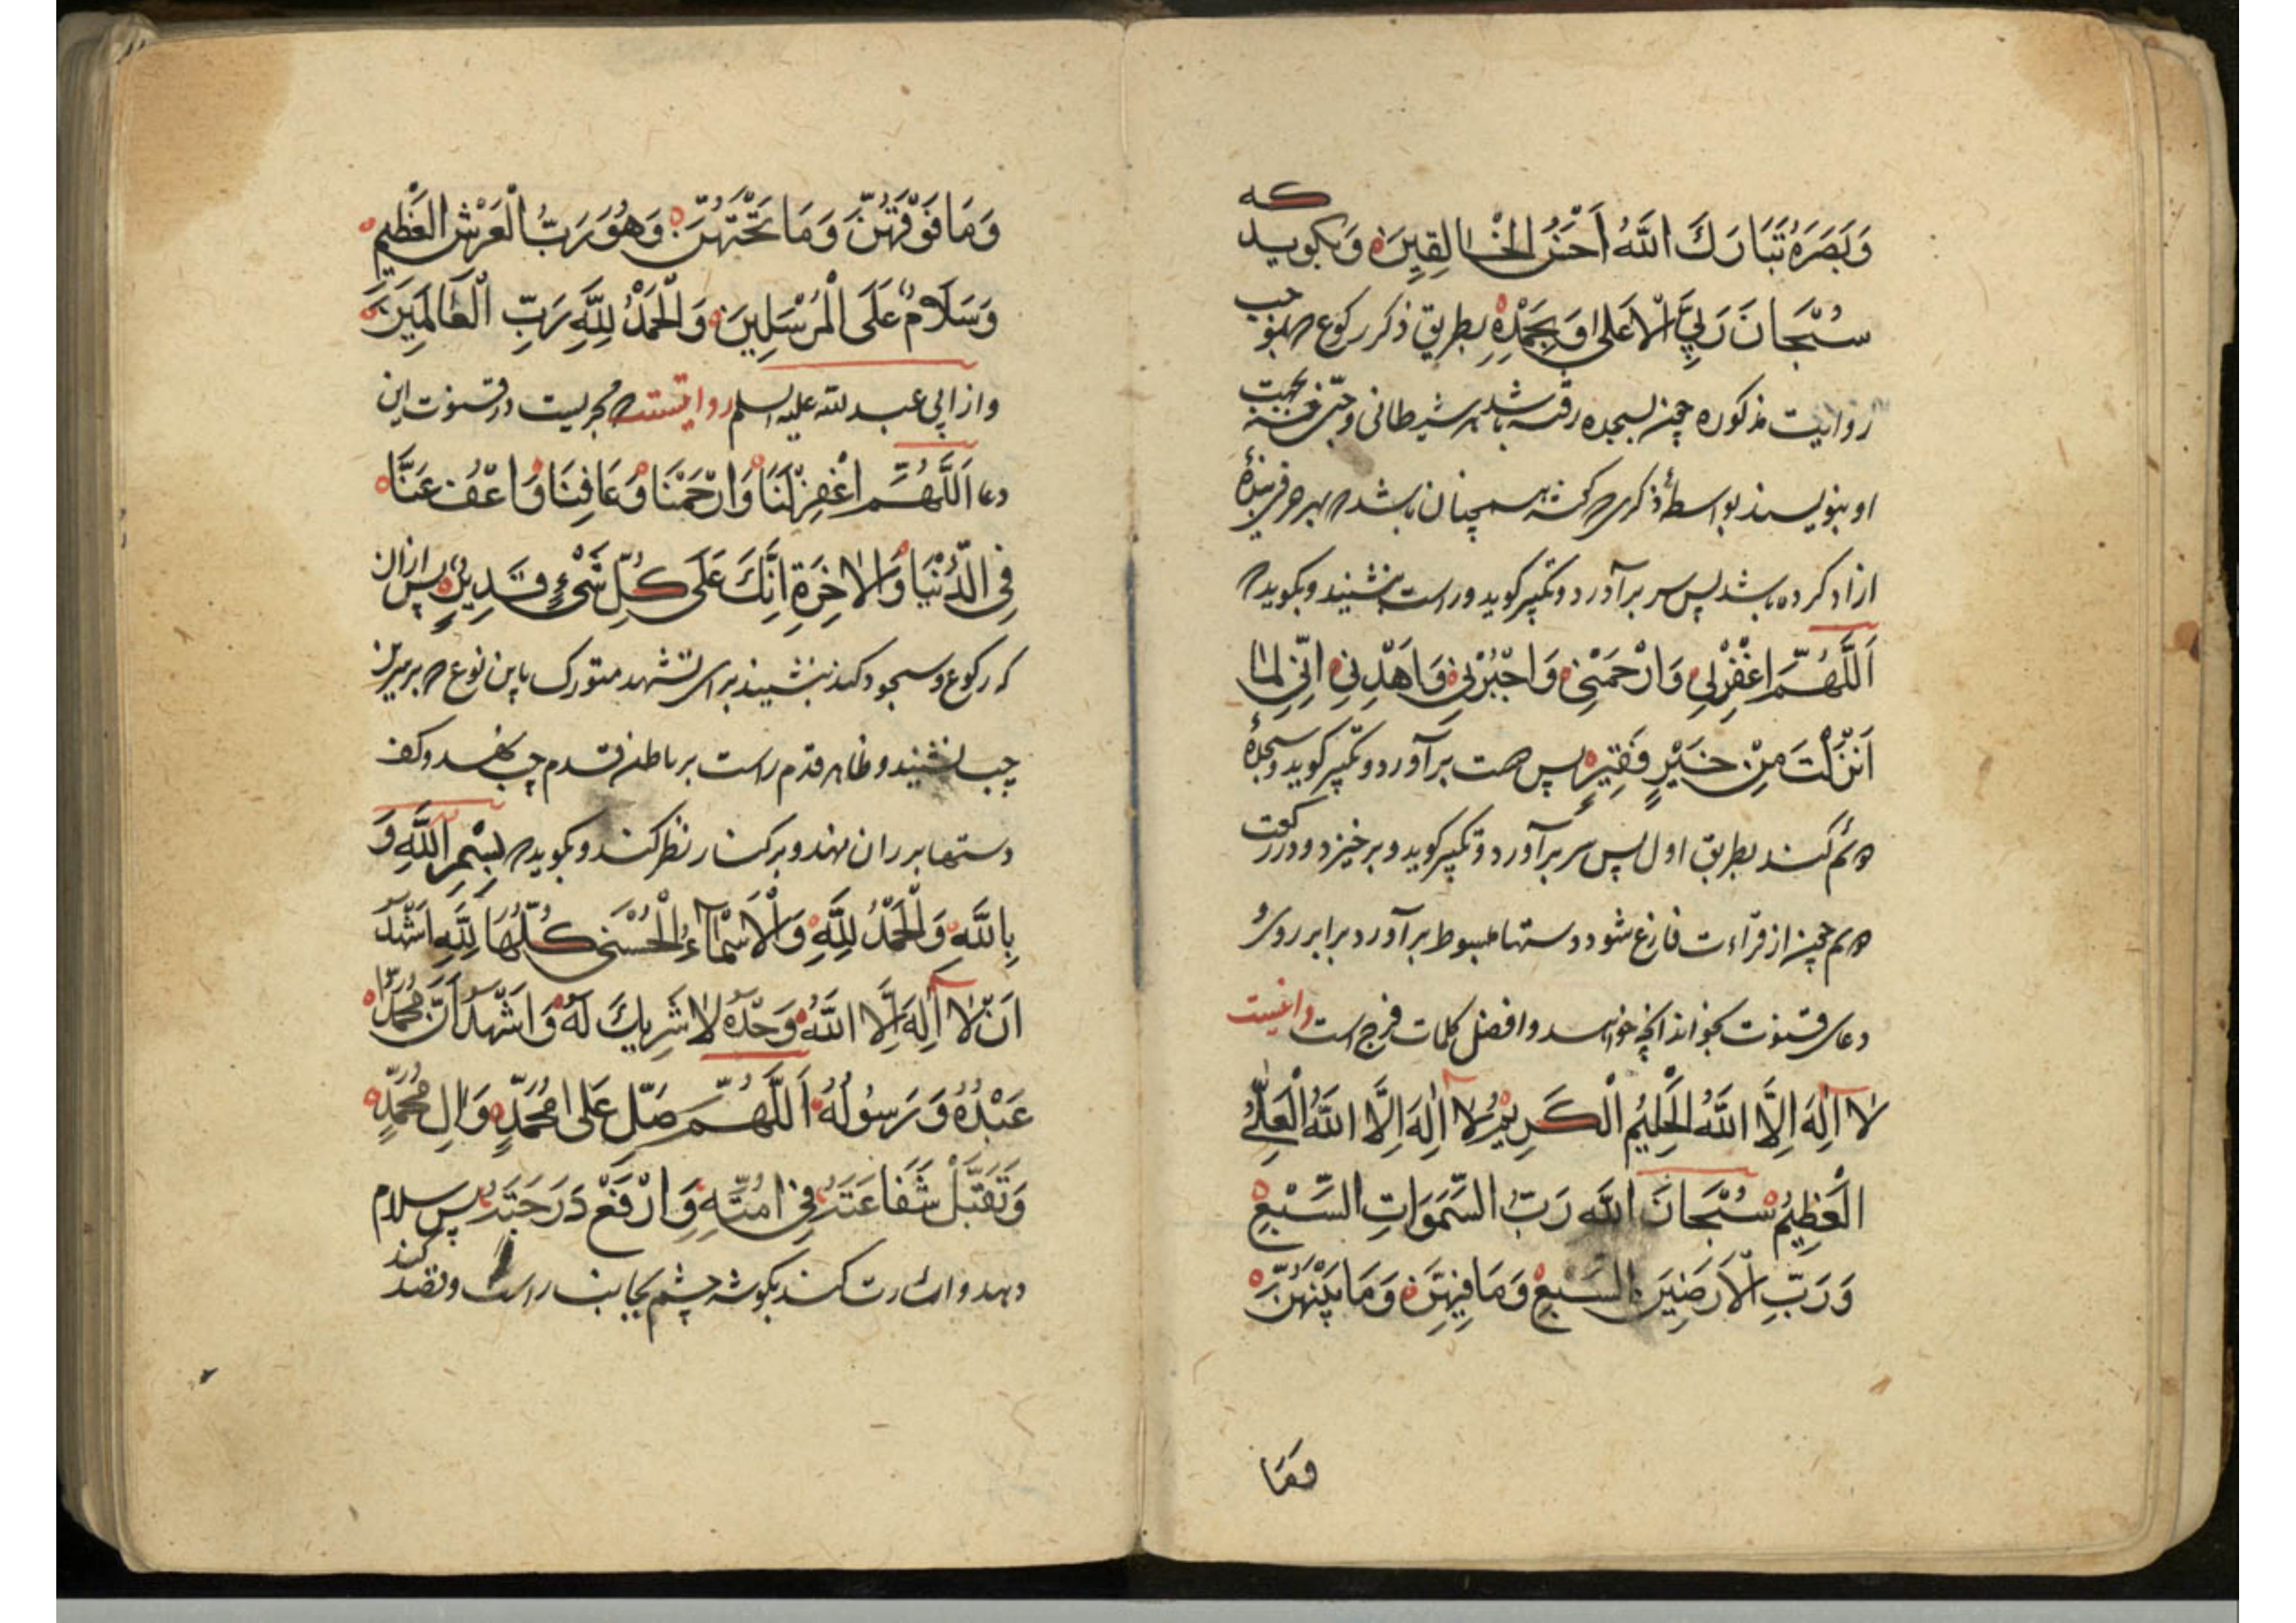 وَبَصَرَهُ تَبَارَكَ اللَّهُ اَحْسَنُ الْخَالِقِينَ وَبگويد كه
سُبْحَانَ رَبِّيَ الْاَعْلىٰ وَبِحَمْدِهِ بطريق ذكر ركوع
روايت مذكوره چون بسجده رفته باشد هر شيطانى و جنى
او بنويسند بواسطۀ ذكرى كه گفته همچنان باشد كه
ازاد كرده باشد پس سر برآورد و تكبير گويد و راست بنشيند و بگويد كه
اَللَّهُمَّ اغْفِرْلِي وَارْحَمْنِي وَاجْبُرْنِي وَاهْدِنِي اِنِّي لِمَا
اَنْزَلْتَ مِنْ خَيْرٍ فَقِيرٍ پس دست برآورد و تكبير گويد و سجدۀ
دوم كند بطريق اول پس سر برآورد و تكبير گويد و برخيزد و در ركعت
دوم چون از قراءت فارغ شود دستها مبسوط برآورد برابر روى و
دعاى قنوت بخواند انچه خواهد و افضل كلمات فرج است
لَا اِلٰهَ اِلَّا اللَّهُ الْحَلِيمُ الْكَرِيمُ لَا اِلٰهَ اِلَّا اللَّهُ الْعَلِيُّ
الْعَظِيمُ سُبْحَانَ اللَّهِ رَبِّ السَّمٰوَاتِ السَّبْعِ
وَرَبِّ الْاَرَضِينَ السَّبْعِ وَمَا فِيهِنَّ وَمَا بَيْنَهُنَّ
وَمَا
وَمَا فَوْقَهُنَّ وَمَا تَحْتَهُنَّ وَهُوَ رَبُّ الْعَرْشِ الْعَظِيمِ
وَسَلَامٌ عَلَى الْمُرْسَلِينَ وَالْحَمْدُ لِلَّهِ رَبِّ الْعَالَمِينَ
و از ابى عبد الله عليه السلم روايتست كه مجزيست در قنوت اين
دعا اَللَّهُمَّ اغْفِرْلَنَا وَارْحَمْنَا وَعَافِنَا وَاعْفُ عَنَّا
فِي الدُّنْيَا وَالْاٰخِرَةِ اِنَّكَ عَلَى كُلِّ شَيْءٍ قَدِيرٌ پس ازان
كه ركوع و سجود كند بنشيند براى تشهد متورك باين نوع كه بر سرين
چپ نشيند و ظاهر قدم راست بر باطن قدم چپ نهد و كف
دستها بر ران نهد و بر كنار نظر كند و بگويد كه بِسْمِ اللَّهِ وَ
بِاللَّهِ وَالْحَمْدُ لِلَّهِ وَالْاَسْمَاءُ الْحُسْنٰى كُلُّهَا لِلَّهِ اَشْهَدُ
اَنْ لَا اِلٰهَ اِلَّا اللَّهُ وَحْدَهُ لَا شَرِيكَ لَهُ وَاَشْهَدُ اَنَّ مُحَمَّدًا
عَبْدُهُ وَرَسُولُهُ اَللَّهُمَّ صَلِّ عَلىٰ مُحَمَّدٍ وَاٰلِ مُحَمَّدٍ
وَتَقَبَّلْ شَفَاعَتَهُ فِي اُمَّتِهِ وَارْفَعْ دَرَجَتَهُ پس سلام
دهد و اشارت كند بگوشه چشم بجانب راست و قصد كند